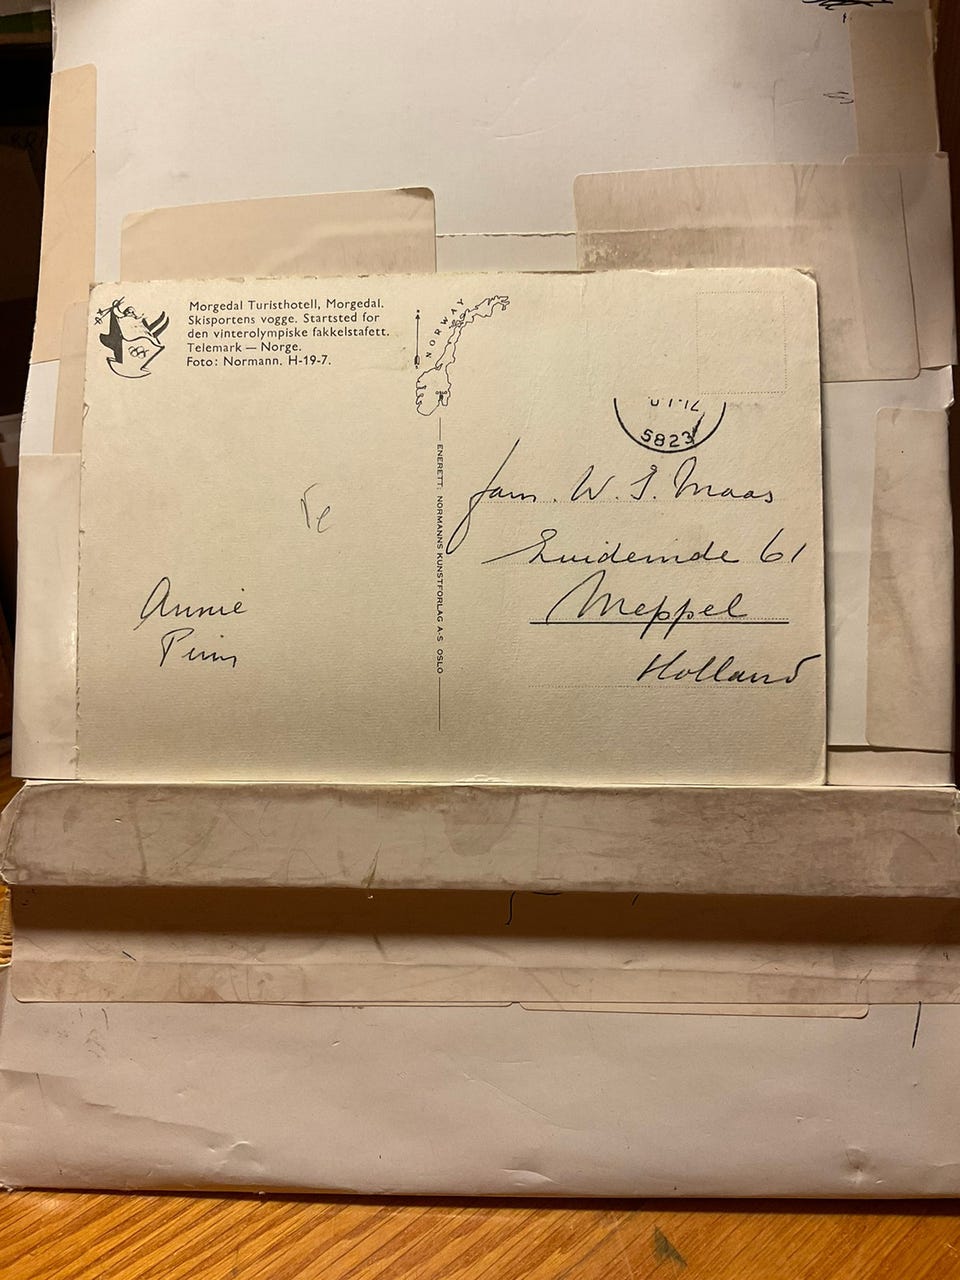 Morgedal Turisthotell, Morgedal.
Skisportens vogge. Startsted for
den vinterolympiske fakkelstafett.
Telemark — Norge.
Foto: Normann. H-19-7.
NORWAY
ENERETT: NORMANNS KUNSTFORLAG A-S OSLO
5823
Te
Annie
Pim
Fam. W. S. Maas
Zuideinde 61
Meppel
Holland